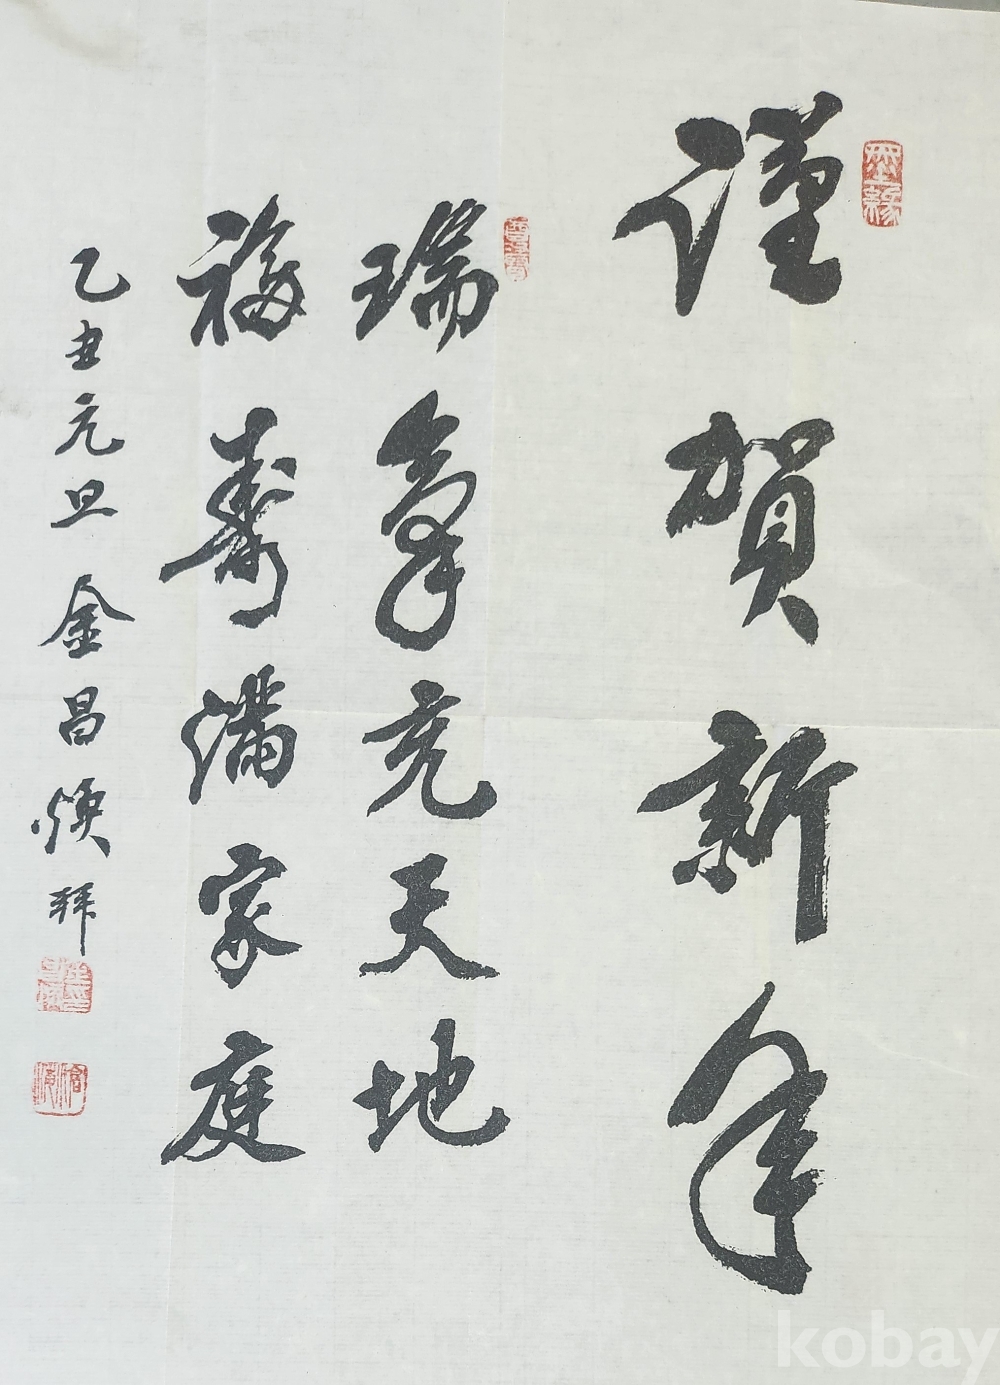 謹賀新年
瑞氣充天地
福壽滿家庭
乙丑元旦 金昌煥拜
墨緣
kobay